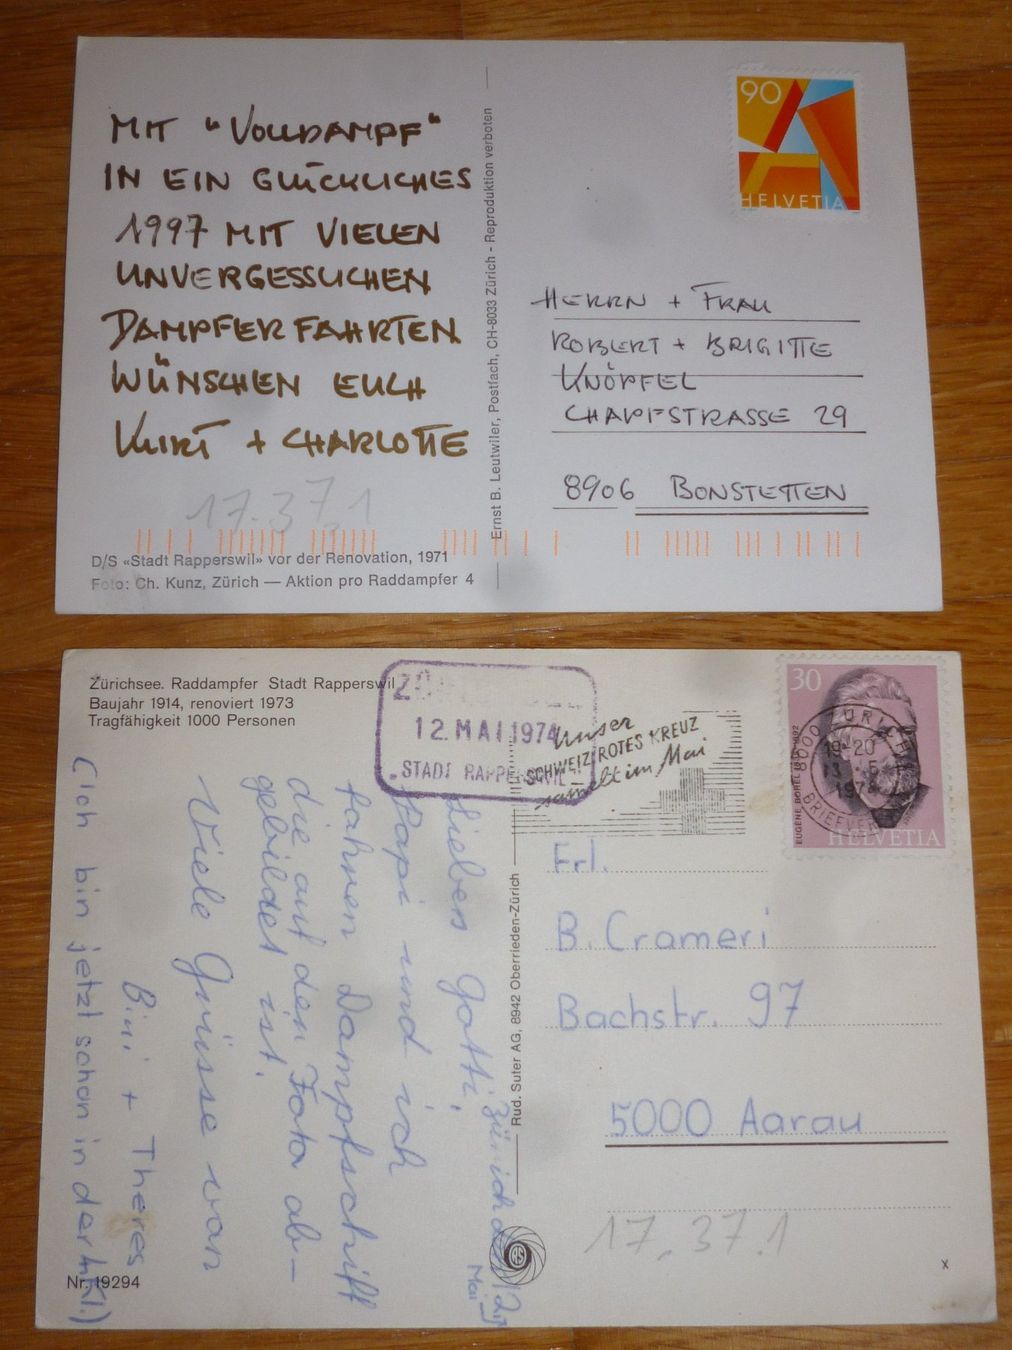 MIT "VOLLDAMPF"
IN EIN GLÜCKLICHES
1997 MIT VIELEN
UNVERGESSLICHEN
DAMPFERFAHRTEN
WÜNSCHEN EUCH
KURT + CHARLOTTE
17.37.1
D/S «Stadt Rapperswil» vor der Renovation, 1971
Foto: Ch. Kunz, Zürich — Aktion pro Raddampfer 4
Ernst B. Leutwiler, Postfach, CH-8033 Zürich - Reproduktion verboten
90
HELVETIA
HERRN + FRAU
ROBERT + BRIGITTE
KNÖPFEL
CHAPFSTRASSE 29
8906 BONSTETTEN
Zürichsee. Raddampfer Stadt Rapperswil
Baujahr 1914, renoviert 1973
Tragfähigkeit 1000 Personen
12. MAI 1974
STADT RAPPERSWIL
Unser
SCHWEIZ. ROTES KREUZ
sammelt im Mai
30
EUGÈNE BOREL 1835-1892
HELVETIA
8000 ZÜRICH
19-20
13.-5.
BRIEFVERSAND
Zürich den 12.
Mai
Liebes Gotti,
Papi und ich
fahren Dampfschiff
die auf dem Foto ab-
gebildet ist.
Viele Grüsse von
Bini + Theres
(Ich bin jetzt schon in der 1.Kl.)
Rud. Suter AG, 8942 Oberrieden-Zürich
Frl.
B. Crameri
Bachstr. 97
5000 Aarau
17.37.1
RS
Nr. 19294
x